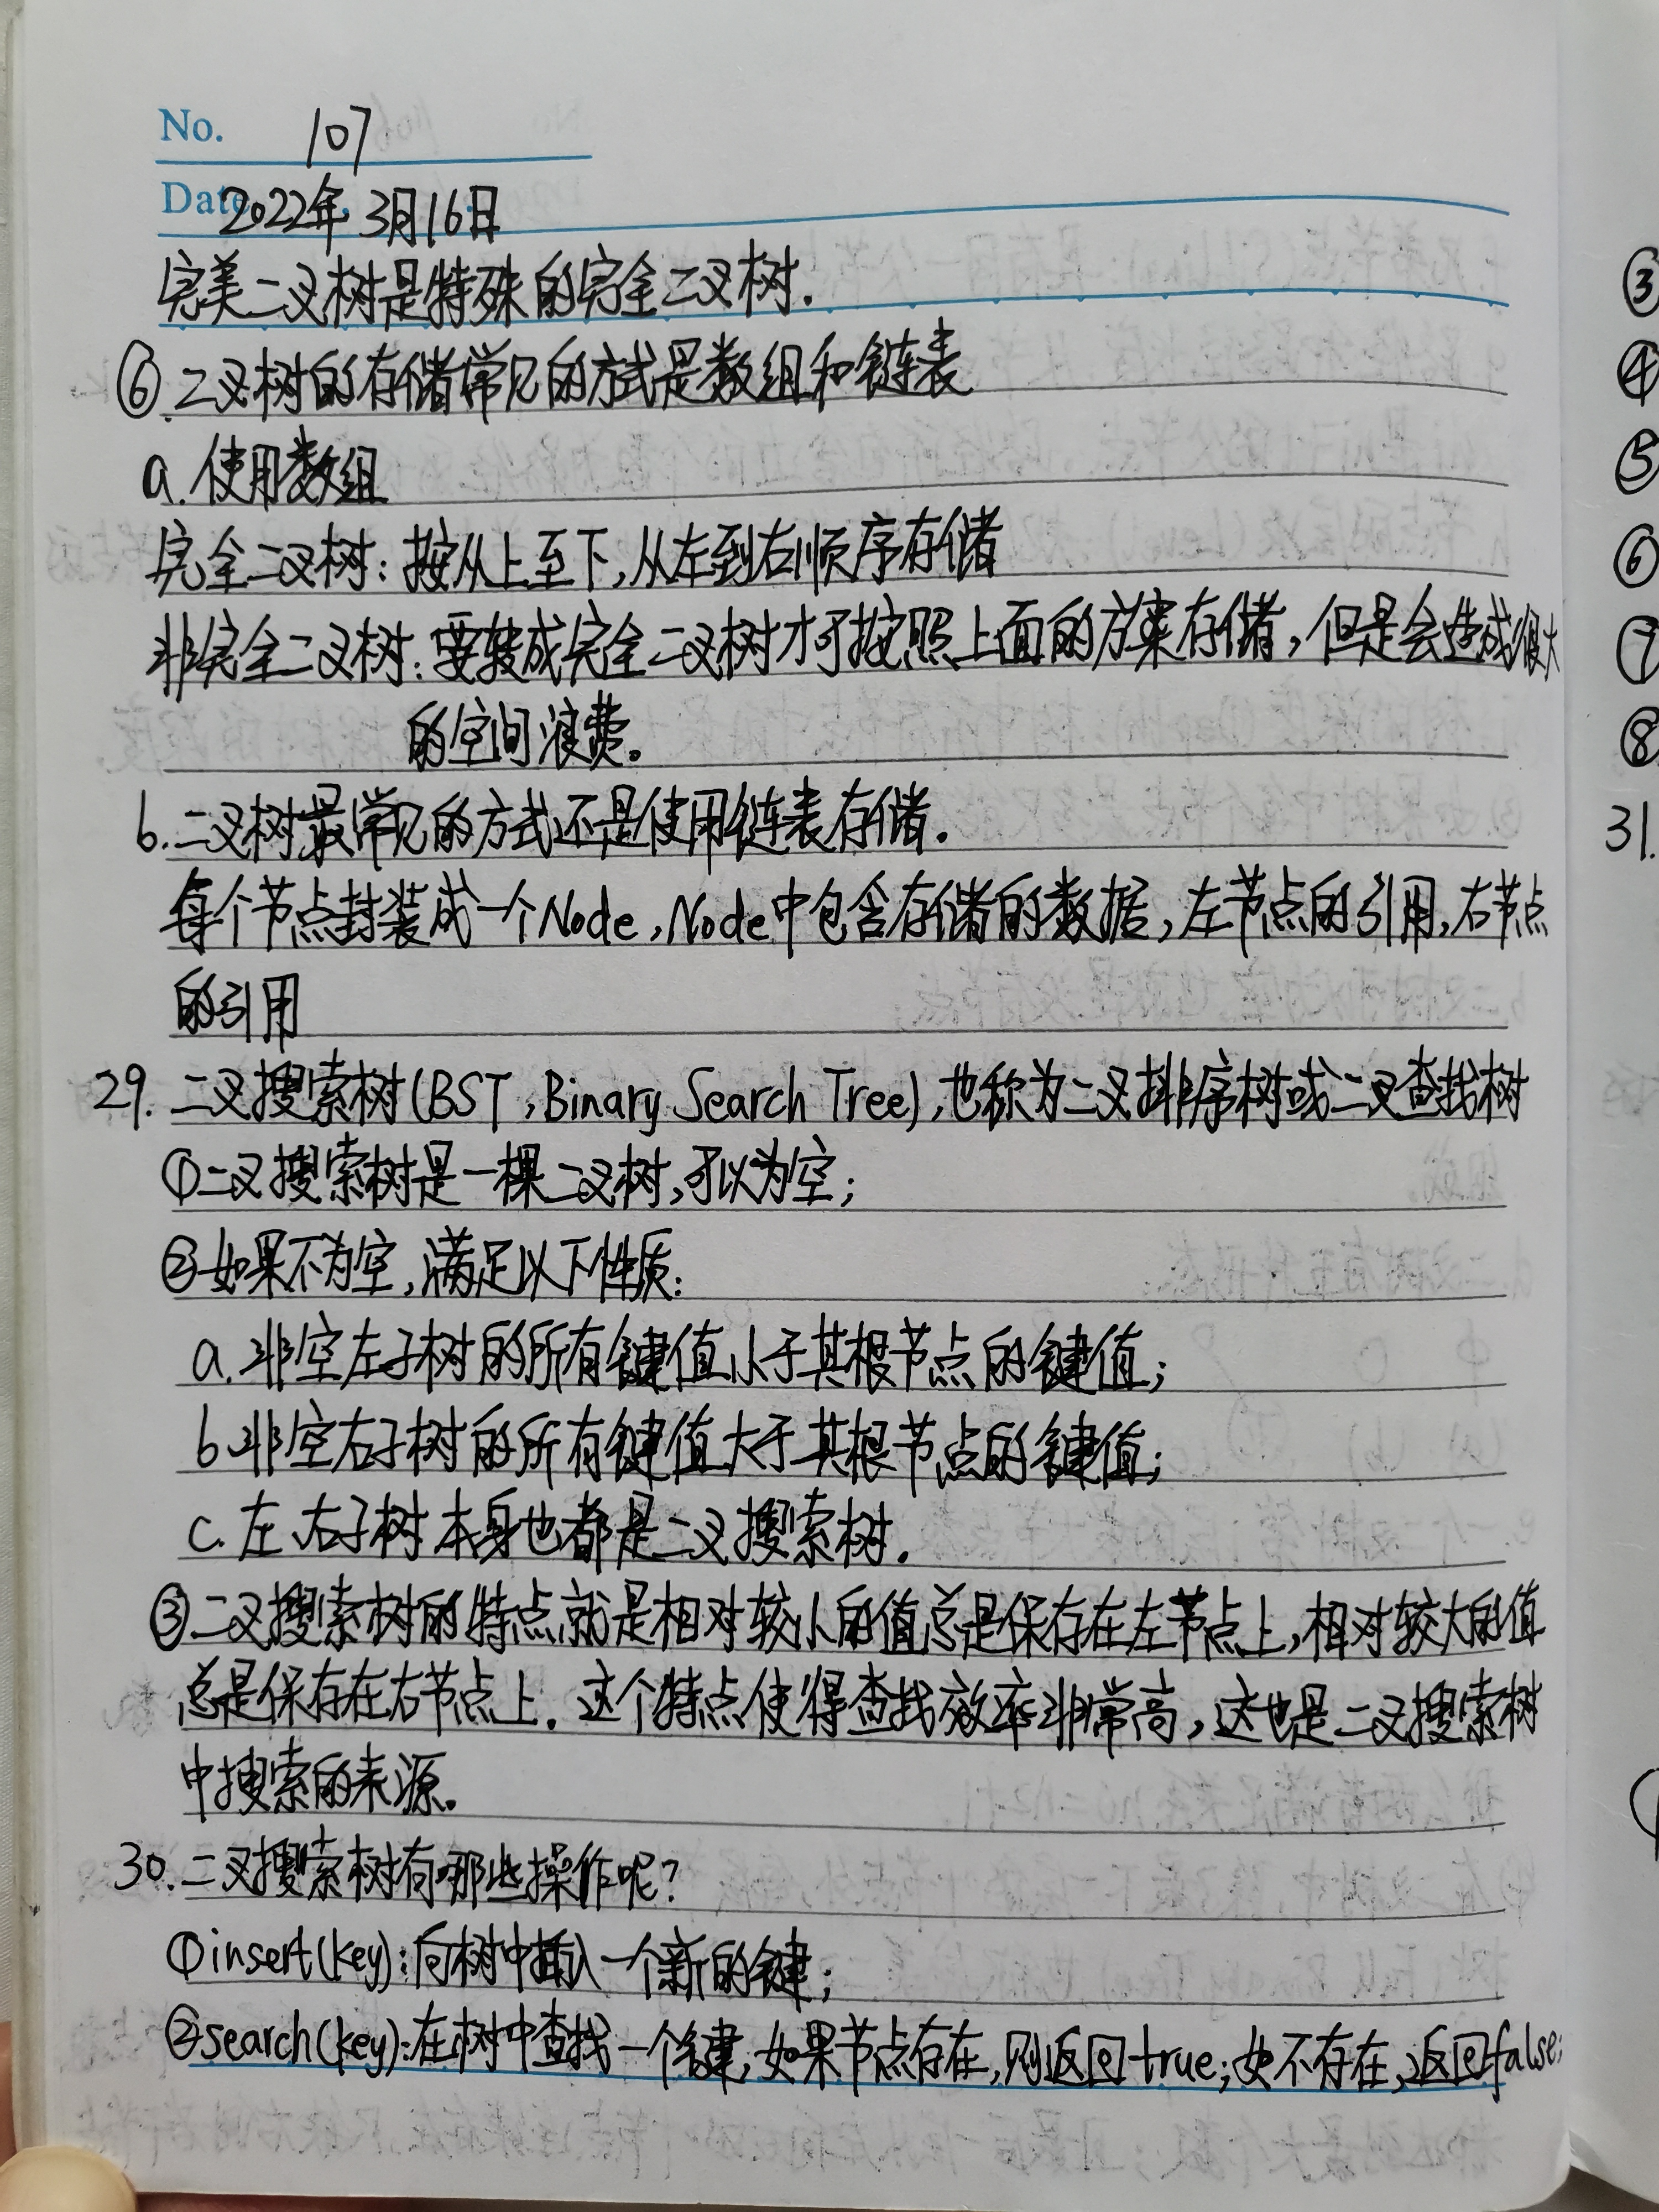 No. 107
Date 2022年3月16日
完美二叉树是特殊的完全二叉树.
⑥.二叉树的存储常见的方式是数组和链表
a.使用数组
完全二叉树:按从上至下,从左到右顺序存储
非完全二叉树:要转成完全二叉树才可按照上面的方案存储,但是会造成很大
的空间浪费。
b.二叉树最常见的方式还是使用链表存储.
每个节点封装成一个Node,Node中包含存储的数据,左节点的引用,右节点
的引用
29.二叉搜索树(BST,Binary Search Tree),也称为二叉排序树或二叉查找树
①二叉搜索树是一棵二叉树,可以为空;
②如果不为空,满足以下性质:
a.非空左子树的所有键值小于其根节点的键值;
b.非空右子树的所有键值大于其根节点的键值;
c.左、右子树本身也都是二叉搜索树.
③二叉搜索树的特点就是相对较小的值总是保存在左节点上,相对较大的值
总是保存在右节点上.这个特点使得查找效率非常高,这也是二叉搜索树
中搜索的来源.
30.二叉搜索树有哪些操作呢?
①insert(key):向树中插入一个新的键;
②search(key):在树中查找一个键,如果节点存在,则返回true;如不存在,返回false;
③
④
⑤
⑥
⑦
⑧
31.